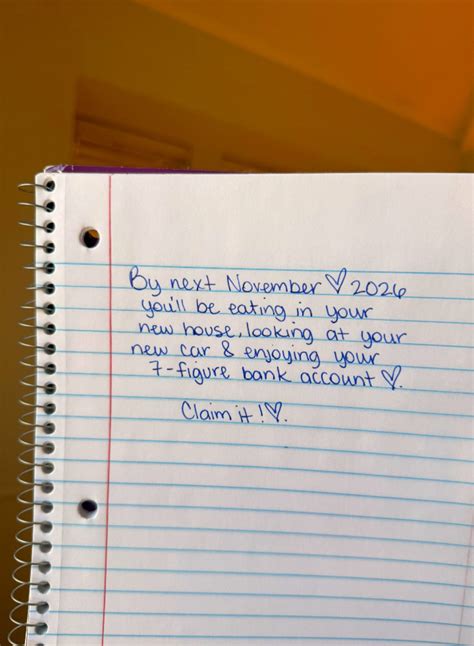 By next November ♡ 2026
you'll be eating in your
new house, looking at your
new car & enjoying your
7-figure bank account ♡.
Claim it! ♡.